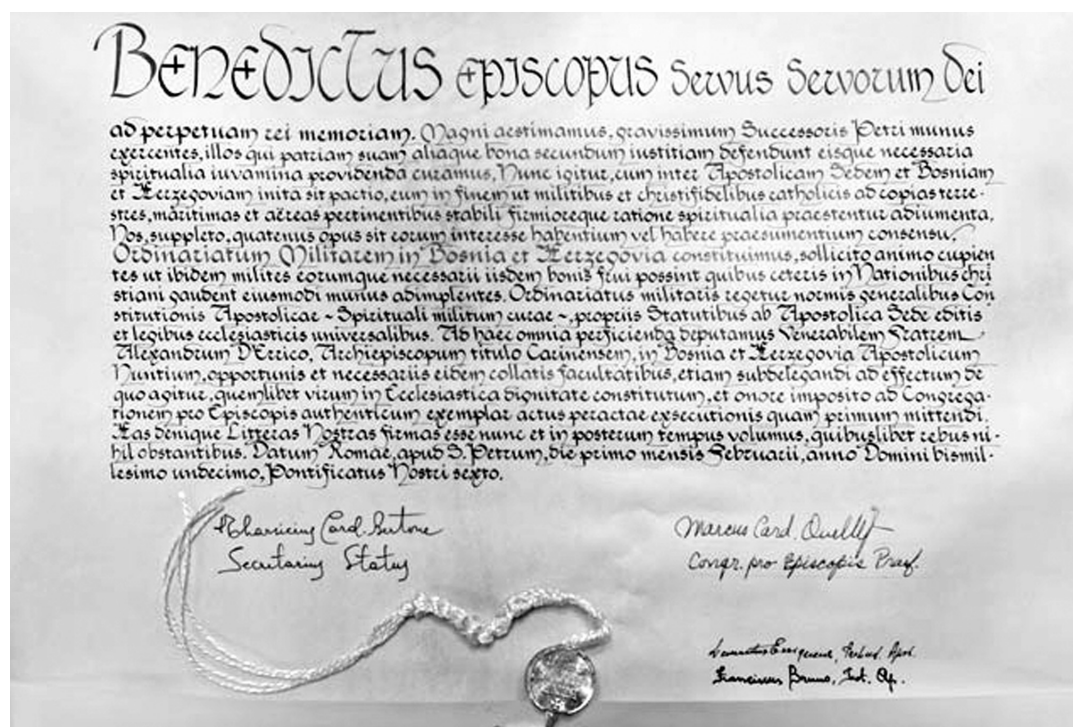 BENEDICTUS EPISCOPUS Servus Servorum Dei
ad perpetuam rei memoriam. Magni aestimamus, gravissimum Successoris Petri munus
exercentes, illos qui patriam suam aliaque bona secundum iustitiam defendunt eisque necessaria
spiritualia iuvamina providenda curamus. Nunc igitur, cum inter Apostolicam Sedem et Bosniam
et Herzegoviam inita sit pactio, eum in finem ut militibus et christifidelibus catholicis ad copias terre-
stres, maritimas et aëreas pertinentibus stabili firmioreque ratione spiritualia praestentur adiumenta,
Nos, suppleto, quatenus opus sit eorum interesse habentium vel habere praesumentium consensu,
Ordinariatum Militarem in Bosnia et Herzegovia constituimus, sollicito animo cupien
tes ut ibidem milites eorumque necessarii iisdem bonis frui possint quibus ceteris in Nationibus chri
stiani gaudent eiusmodi munus adimplentes. Ordinariatus militaris regetur normis generalibus Con
stitutionis Apostolicae ~ Spirituali militum curae ~, propriis Statutibus ab Apostolica Sede editis
et legibus ecclesiasticis universalibus. Ad haec omnia perficienda deputamus Venerabilem Fratrem
Alexandrum D'Errico, Archiepiscopum titulo Carinensem, in Bosnia et Herzegovia Apostolicum
Nuntium, opportunis et necessariis eidem collatis facultatibus, etiam subdelegandi ad effectum de
quo agitur, quemlibet virum in Ecclesiastica dignitate constitutum, et onore imposito ad Congrega-
tionem pro Episcopis authenticum exemplar actus peractae exsecutionis quam primum mittendi.
Has denique Litteras Nostras firmas esse nunc et in posterum tempus volumus, quibuslibet rebus ni-
hil obstantibus. Datum Romae, apud S. Petrum, die primo mensis Februarii, anno Domini bismil-
lesimo undecimo, Pontificatus Nostri sexto.
Tharsicius Card. Bertone
Secretarius Status
Marcus Card. Ouellet
Congr. pro Episcopis Praef.
Franciscus Bruno,